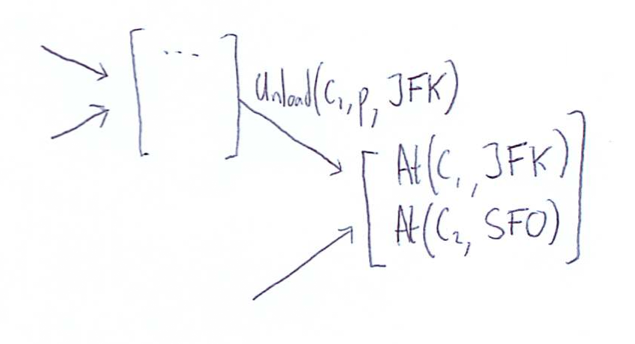 ...
Unload(C₁, p, JFK)
At(C₁, JFK)
At(C₂, SFO)